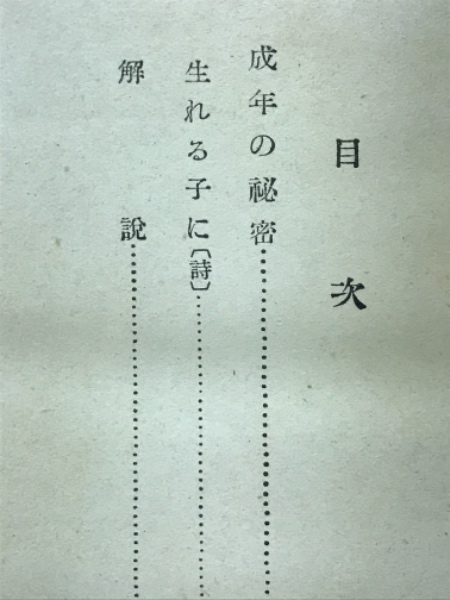 目次
成年の祕密……………………
生れる子に〔詩〕……………………
解說……………………